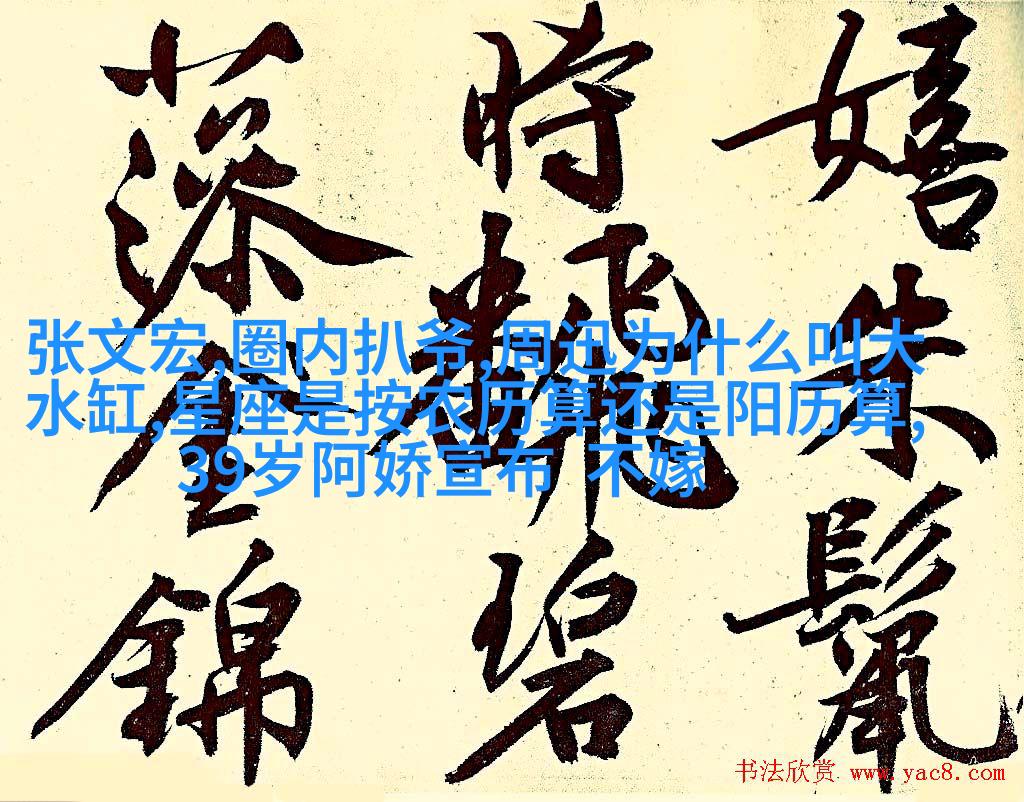 嬉朱鬣
時飜碧
藻錦
张文宏,圈内扒爷,周迅为什么叫大
水缸,星座是按农历算还是阳历算,
39岁阿娇宣布 不嫁
书法欣赏 www.yac8.com